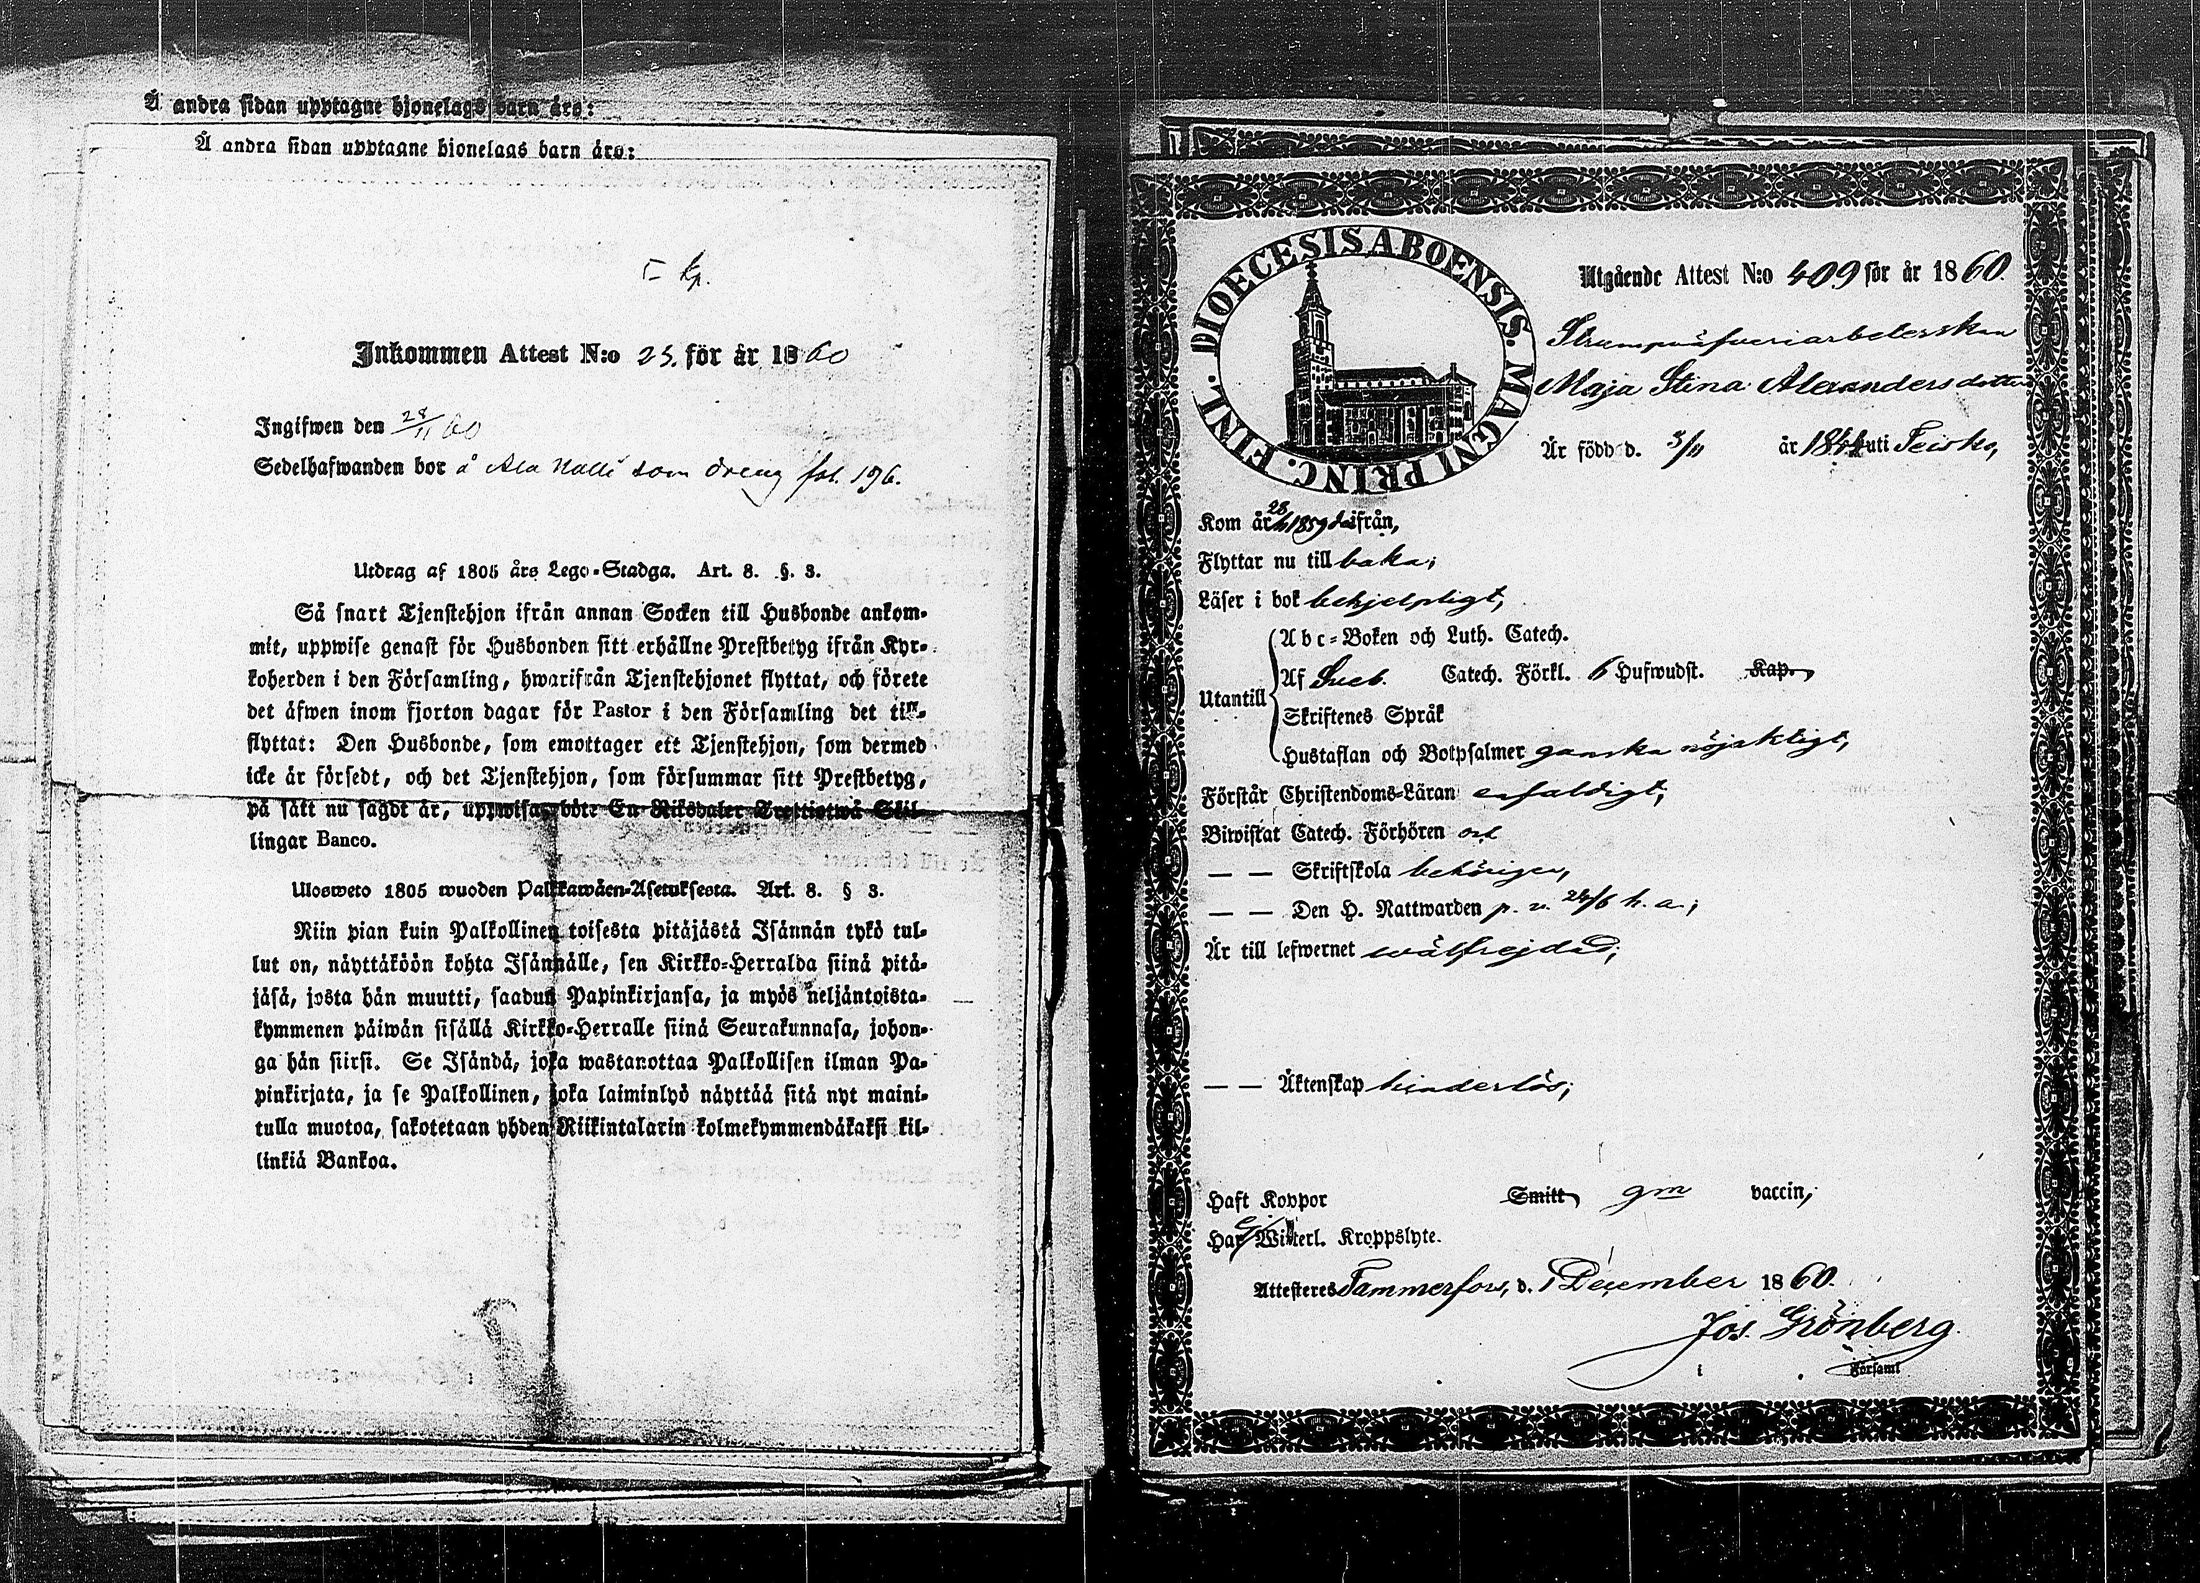 Å andra sidan upptagne hjonelags barn äro:
Å andra sidan upptagne hjonelags barn äro:
kp.
Inkommen Attest N:o 25. för år 1860
Ingifwen den 28/11 60
Sedelhafwanden bor å Ala Nalli som dreng fol. 196.
Utdrag af 1805 års Lego-Stadga. Art. 8. §. 3.
Så snart Tjenstehjon ifrån annan Socken till Husbonde ankom-
mit, uppwise genast för Husbonden sitt erhållne Prestbetyg ifrån Kyr-
koherden i den Församling, hwarifrån Tjenstehjonet flyttat, och förete
det äfwen inom fjorton dagar för Pastor i den Församling det till-
flyttat: Den Husbonde, som emottager ett Tjenstehjon, som dermed
icke är försedt, och det Tjenstehjon, som försummar sitt Prestbetyg,
på sätt nu sagdt är, uppwisa, böte En Riksdaler Trettiotwå Skil-
lingar Banco.
Ulosweto 1805 wuoden Palkkawäen-Asetuksesta. Art. 8. § 3.
Niin pian kuin Palkollinen toisesta pitäjästä Isännän tykö tul-
lut on, näyttäköön kohta Isännälle, sen Kirkko-Herralda siinä pitä-
jäsä, josta hän muutti, saadun Papinkirjansa, ja myös neljäntoista-
kymmenen päiwän sisällä Kirkko-Herralle siinä Seurakunnasa, johon-
ga hän siirsi. Se Isändä, joka wastanottaa Palkollisen ilman Pa-
pinkirjata, ja se Palkollinen, joka laiminlyö näyttää sitä nyt maini-
tulla muotoa, sakotetaan yhden Riikintalarin kolmekymmendäkaksi kil-
linkiä Bankoa.
FINL. DIOECESIS ABOENSIS. MAGNI PRINC.
Utgående Attest N:o 409 för år 1860.
Strumpväfveriarbeterskan
Maja Stina Alexandersdotter
Är född d. 3/11 år 1844 uti Teisko,
Kom år 28/11 1859 därifrån,
Flyttar nu till baka;
Läser i bok behjelpligt,
Abc-Boken och Luth. Catech.
Utantill Af Sveb. Catech. Förkl. 6 Hufwudst. Kap.
Skriftenes Språk
Hustaflan och Botpsalmer ganska nöjaktigt,
Förstår Christendoms-Läran enfaldigt;
Biwistat Catech. Förhören och
— — Skriftskola behörigen,
— — Den H. Nattwarden p. v. 24/6 h. a.;
Är till lefwernet wälfrejdad;
— — Äktenskap hinderlös;
Haft Koppor Smitt, gm vaccin,
Har Widerl. Kroppslyte.
Attesteres Tammerfors, d. 1 December 1860.
Jos. Grönberg.
i Församl